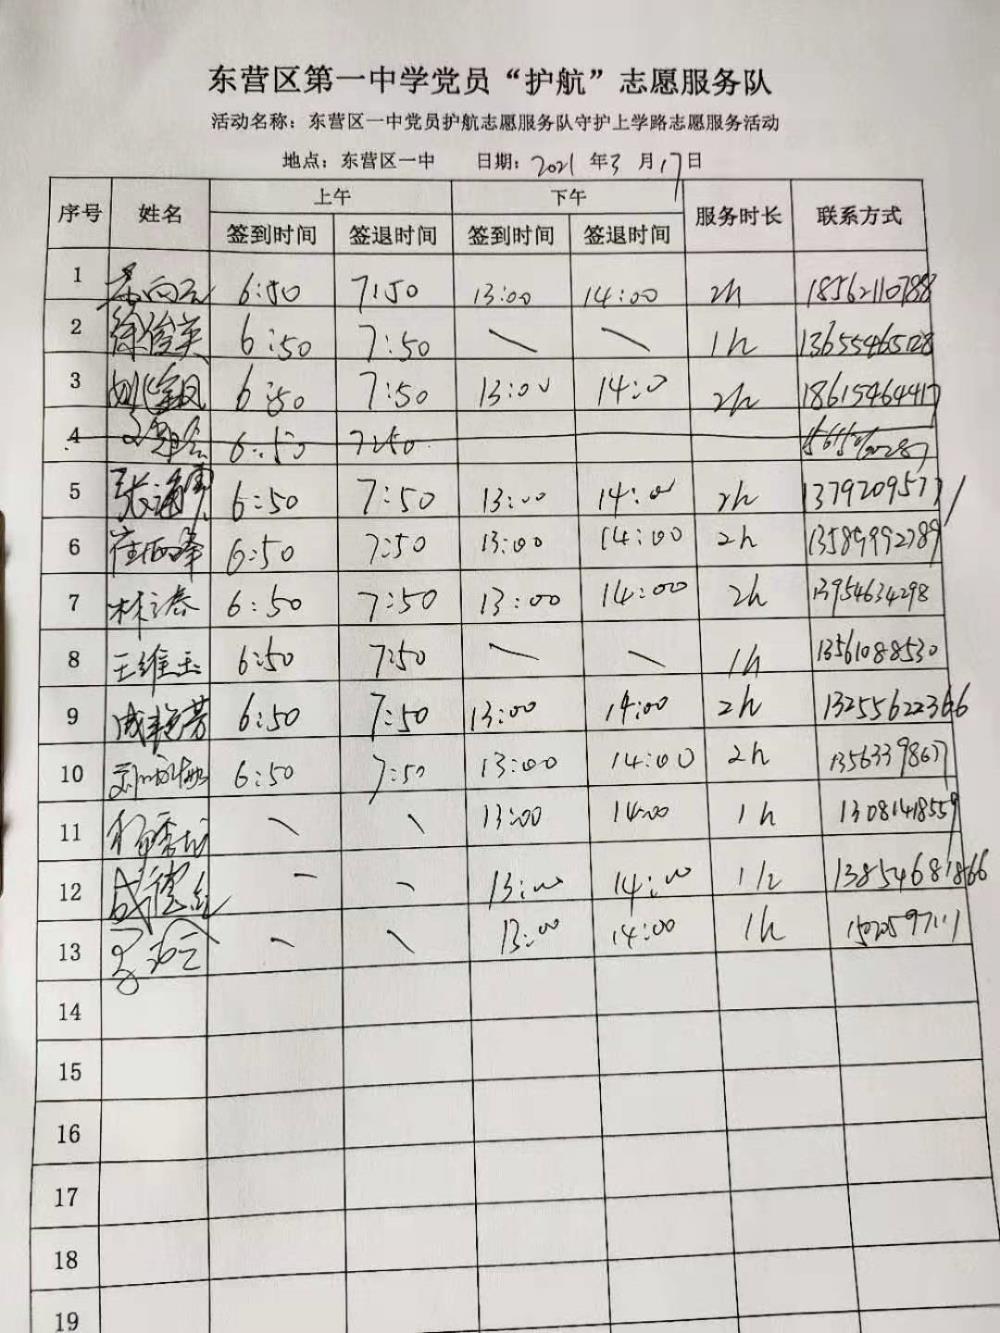 东营区第一中学党员“护航”志愿服务队
活动名称：东营区一中党员护航志愿服务队守护上学路志愿服务活动
地点：东营区一中 日期：2021年3月17日
序号 姓名 上午 下午 服务时长 联系方式
签到时间 签退时间 签到时间 签退时间
1 6:50 7:50 13:00 14:00 2h
2 徐俊英 6:50 7:50 \ \ 1h 13655465128
3 6:50 7:50 13:00 14:00 2h
4 6:50 7:50
5 6:50 7:50 13:00 14:00 2h 13792095771
6 6:50 7:50 13:00 14:00 2h 13589992789
7 林之春 6:50 7:50 13:00 14:00 2h 13954634298
8 王维玉 6:50 7:50 \ \ 1h 13561088530
9 成艳芳 6:50 7:50 13:00 14:00 2h 13255622366
10 6:50 7:50 13:00 14:00 2h 13563398677
11 \ \ 13:00 14:00 1h 13081418559
12 - - 13:00 14:00 1h 13854681866
13 \ \ 13:00 14:00 1h
14
15
16
17
18
19